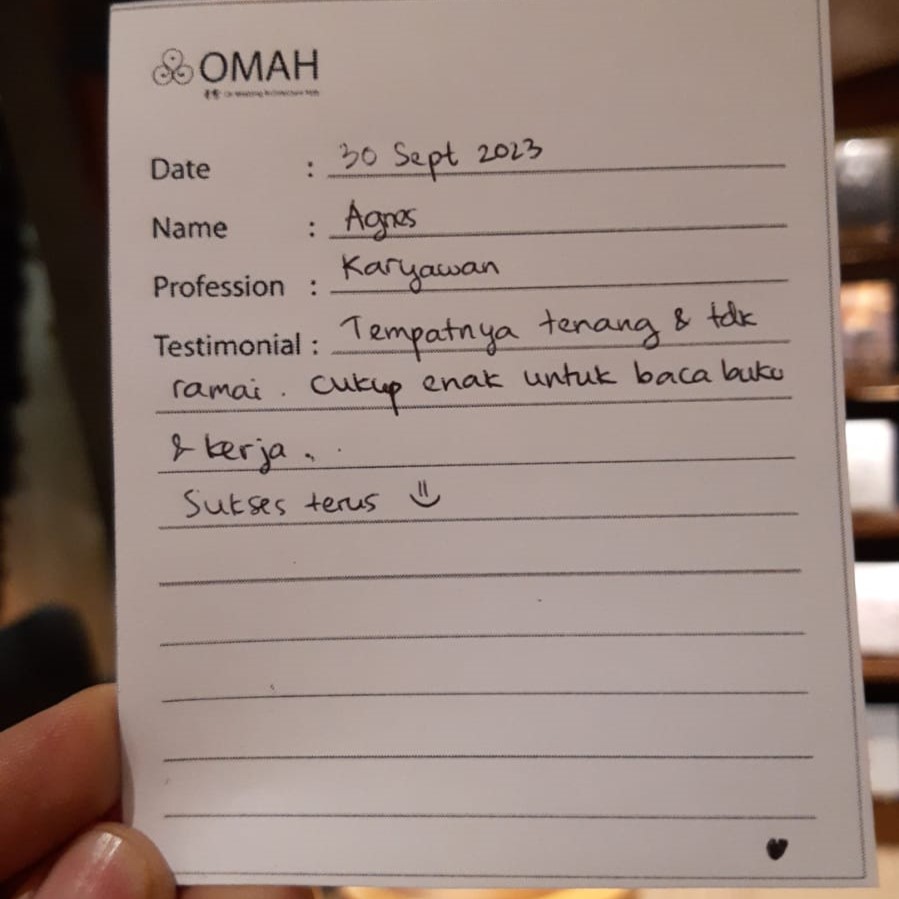 OMAH
Date : 30 Sept 2023
Name : Agnes
Profession : Karyawan
Testimonial : Tempatnya tenang & tdk
ramai. Cukup enak untuk baca buku
& kerja.
Sukses terus